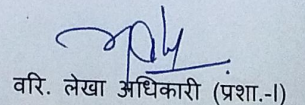 वरि. लेखा अधिकारी (प्रशा.-I)